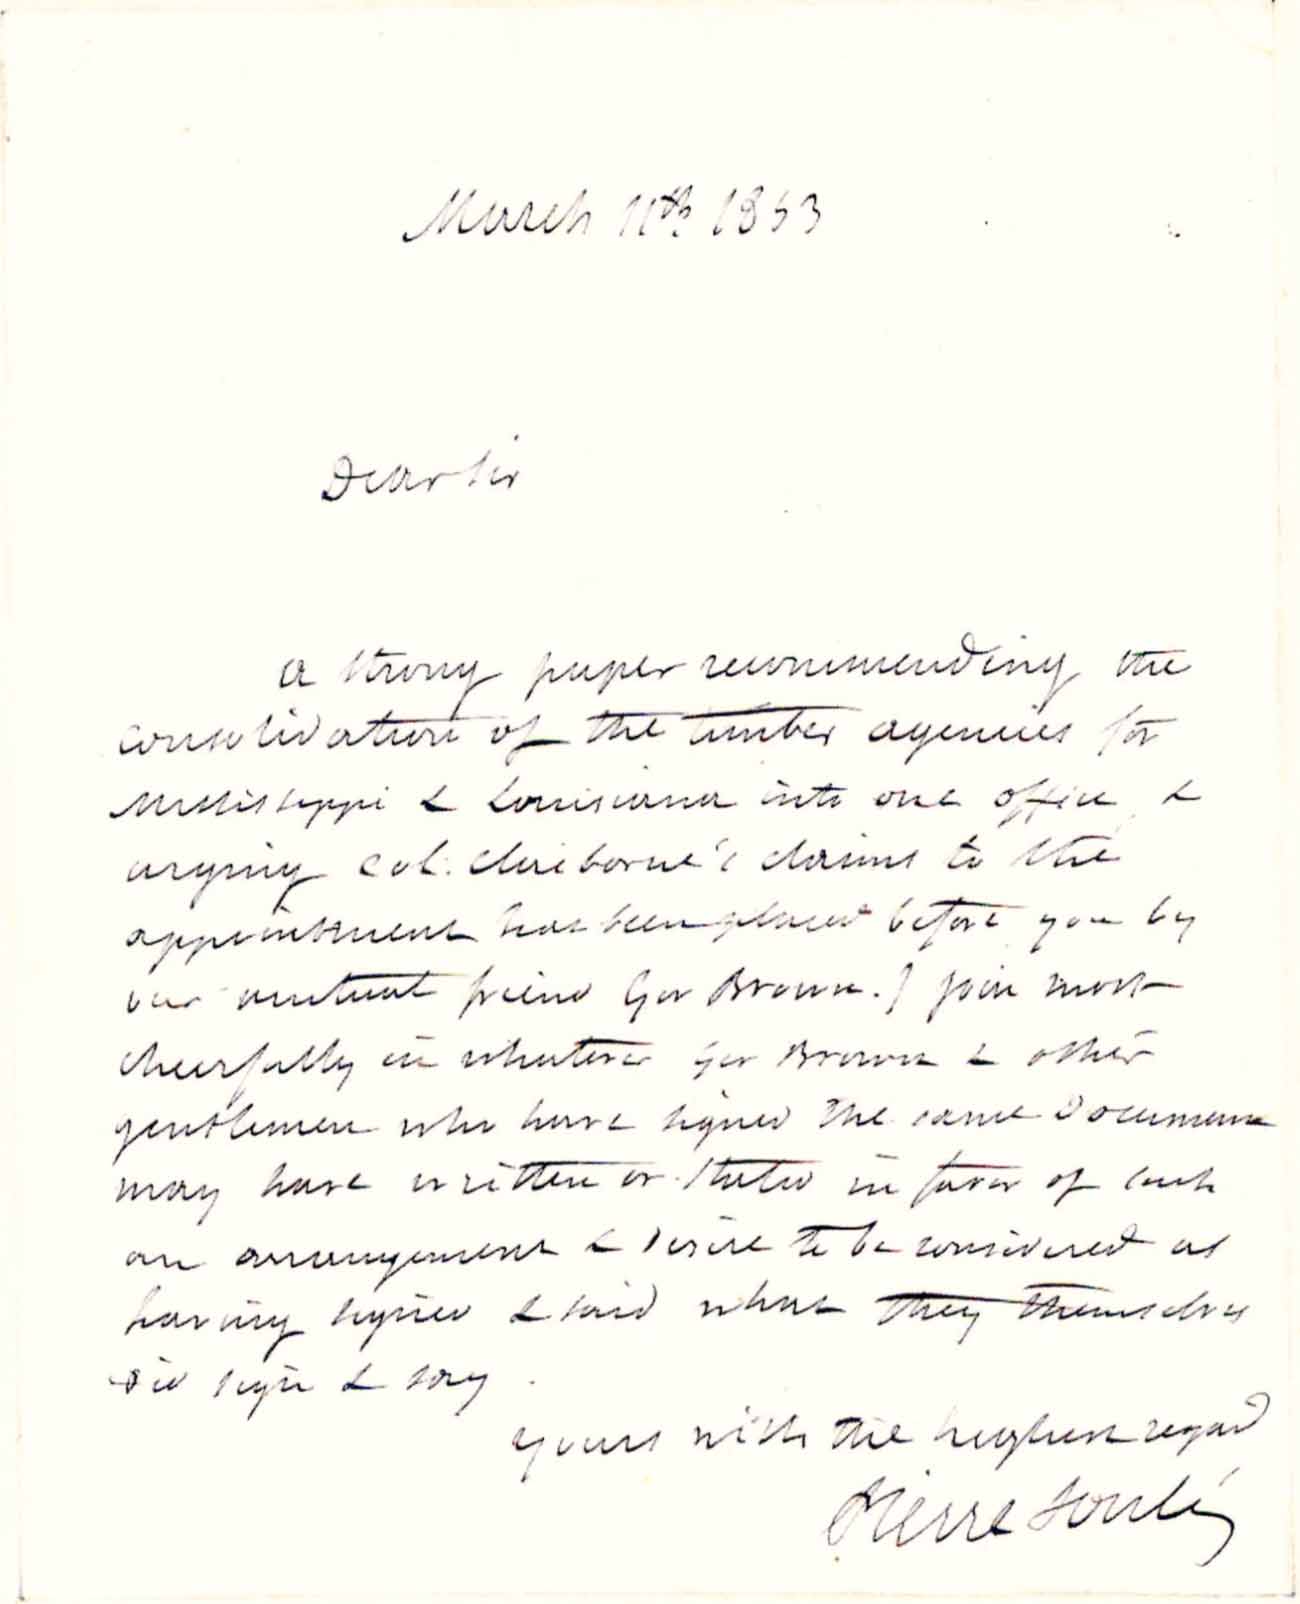 March 11th 1853
Dear Sir
a strong paper recommending the
consolidation of the timber agencies for
Mississippi & Louisiana into one office &
urging Col. Claiborne's claims to the
appointment has been placed before you by
our mutual friend Gov Brown. I join most
cheerfully in whatever Gov Brown & other
gentlemen who have signed the same Document
may have written or stated in favor of such
an arrangement & desire to be considered as
having signed & said what they themselves
did sign & say.
yours with the highest regard
Pierre Soulé